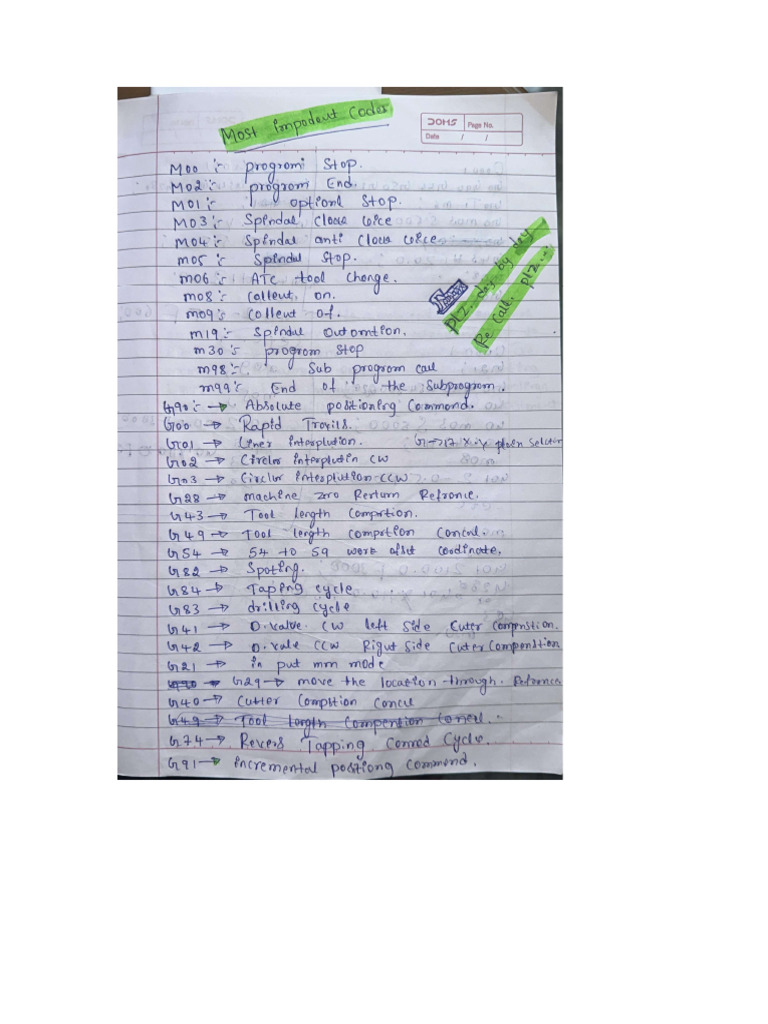 Most impodant Codes
DOMS Page No.
Date / /
M00 :- progromi Stop.
M02 :- progromi End.
M01 :- optionl Stop.
M03 :- Spindal, Clock wice
M04 :- Spindal anti Clock wice
m05 :- Spindul Stop.
m06 :- ATC tool Change.
m08 :- Colleut, on.
m09 :- Colleut of.
m19 :- Spindul Outomtion.
m30 :- progrom Stop
m98 :- Sub progrom call
m99 :- End of the Subprogrom.
plz. day by day
Re Call. plz...
G90 :- → Absolute positioning Commond.
G00 → Rapid Trovils.
G01 → Liner interplution. G→17 X.Y plain Selution
G02 → Circlor interplutin CW
G03 → Circlor interplution CCW
G28 → machine zero Rerturn Refronce.
G43 → Tool length Comprtion.
G49 → Tool length comprtion Concul.
G54 → 54 to 59 work ofset Coordinate.
G82 → Spoting.
G84 → Taping cycle
G83 → drilling cycle
G41 → D.value. CW left Side Cuter Compenstion.
G42 → D.vale CCW Rigut Side Cuter Compenstion
G21 → in put mm mode
G29 → move the location through. Refrence
G40 → Cutter Compstion Concul
G49 → Tool length Compention Concul.
G74 → Revers Tapping Conmod Cycle.
G91 → incremental positiong commond.